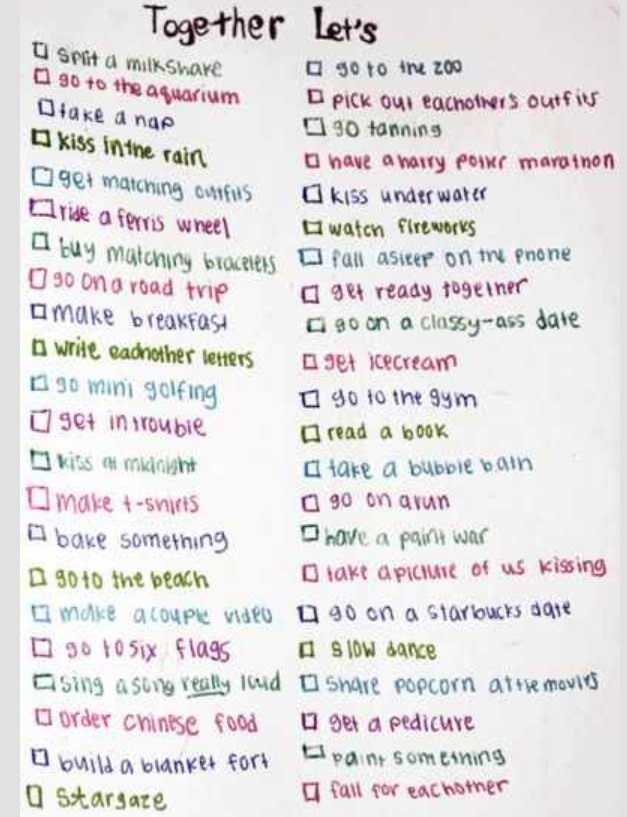 Together Let's
split a milkshake
go to the aquarium
take a nap
kiss in the rain
get matching outfits
ride a ferris wheel
buy matching bracelets
go on a road trip
make breakfast
write eachother letters
go mini golfing
get in trouble
kiss at midnight
make t-shirts
bake something
go to the beach
make a couple video
go to six flags
sing a song really loud
order chinese food
build a blanket fort
Stargaze
go to the zoo
pick out eachother's outfits
go tanning
have a harry potter marathon
kiss underwater
watch fireworks
fall asleep on the phone
get ready together
go on a classy-ass date
get icecream
go to the gym
read a book
take a bubble bath
go on a run
have a paint war
take a picture of us kissing
go on a starbucks date
slow dance
share popcorn at the movies
get a pedicure
paint something
fall for eachother